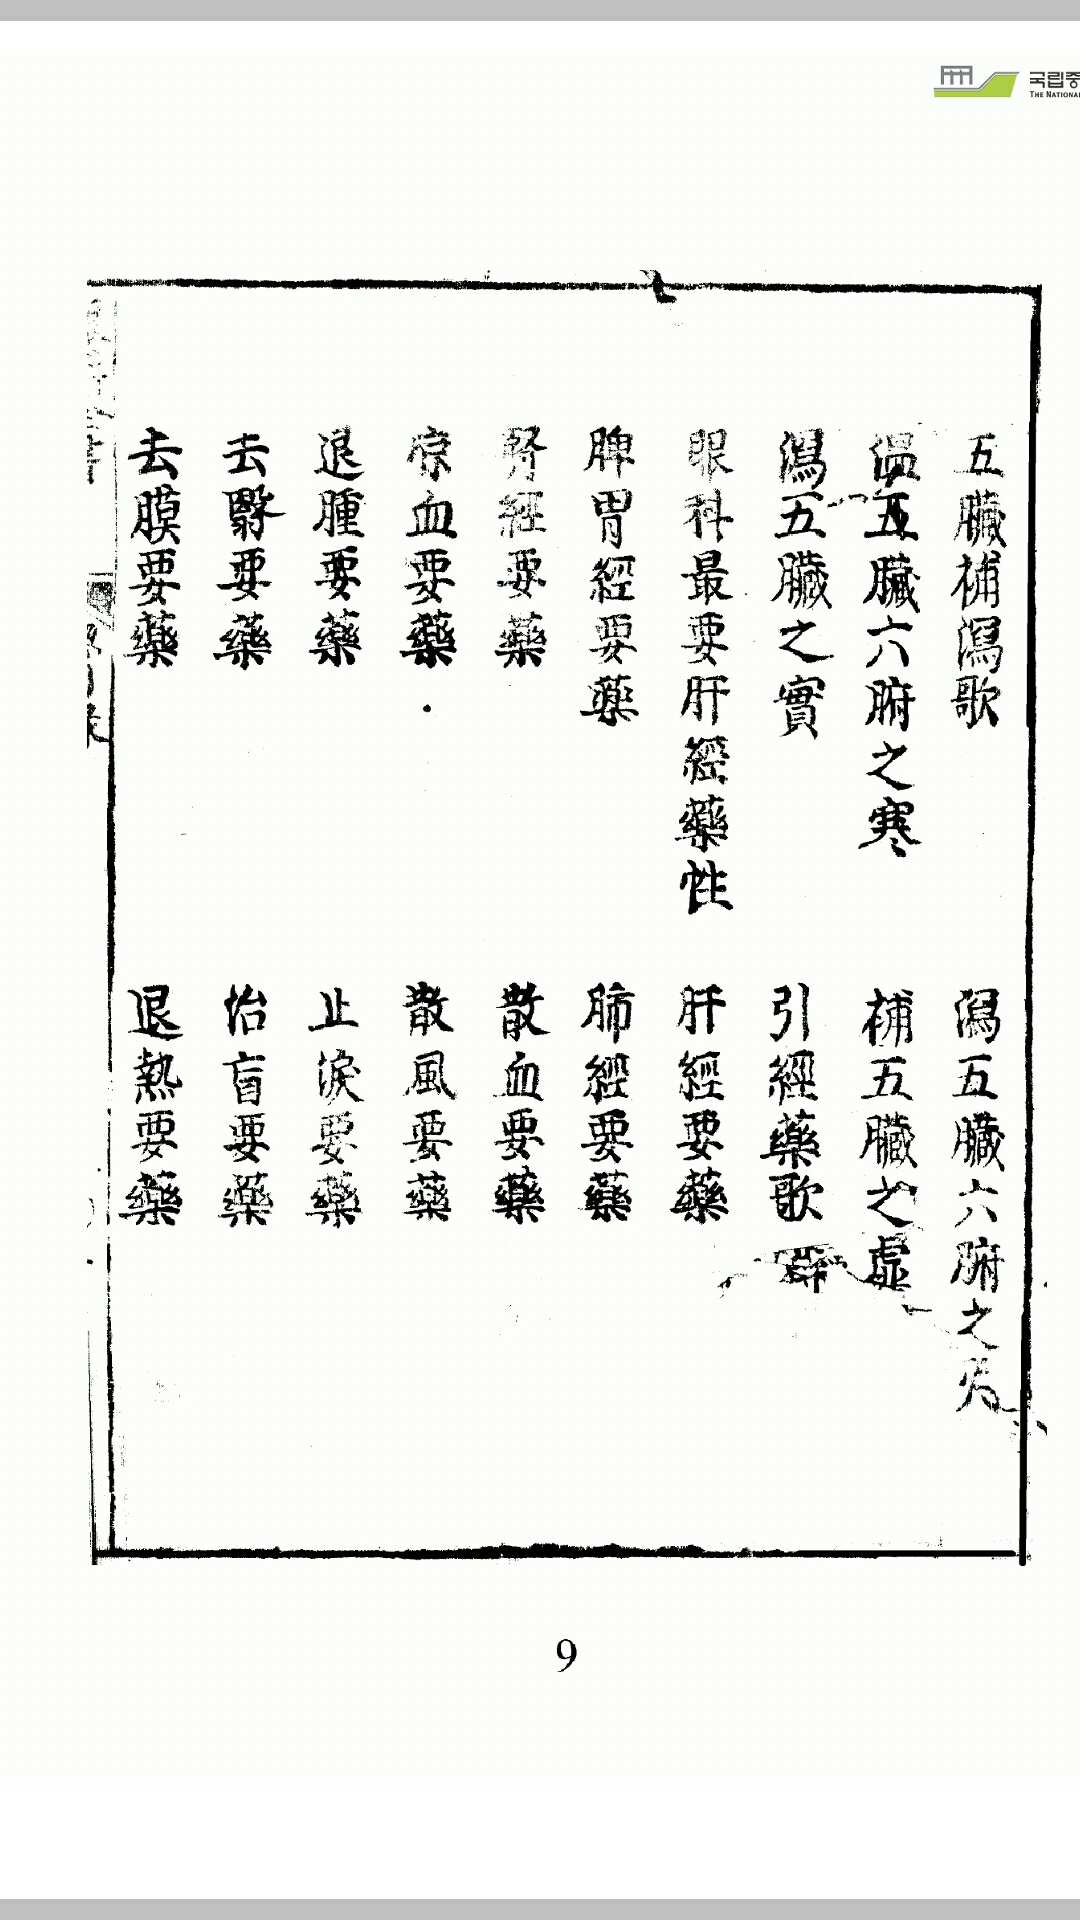 국립중
THE NATIONAL
五臟補瀉歌
瀉五臟六腑之火
溫五臟六腑之寒
補五臟之虛
瀉五臟之實
引經藥歌
眼科最要肝經藥性
肝經要藥
脾胃經要藥
肺經要藥
腎經要藥
散血要藥
凉血要藥
散風要藥
退腫要藥
止淚要藥
去翳要藥
治盲要藥
去膜要藥
退熱要藥
9